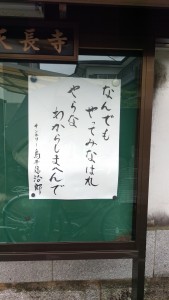 天長寺
なんでも
やってみなはれ
やらな
わからしまへんで
サントリー 鳥井信治郎